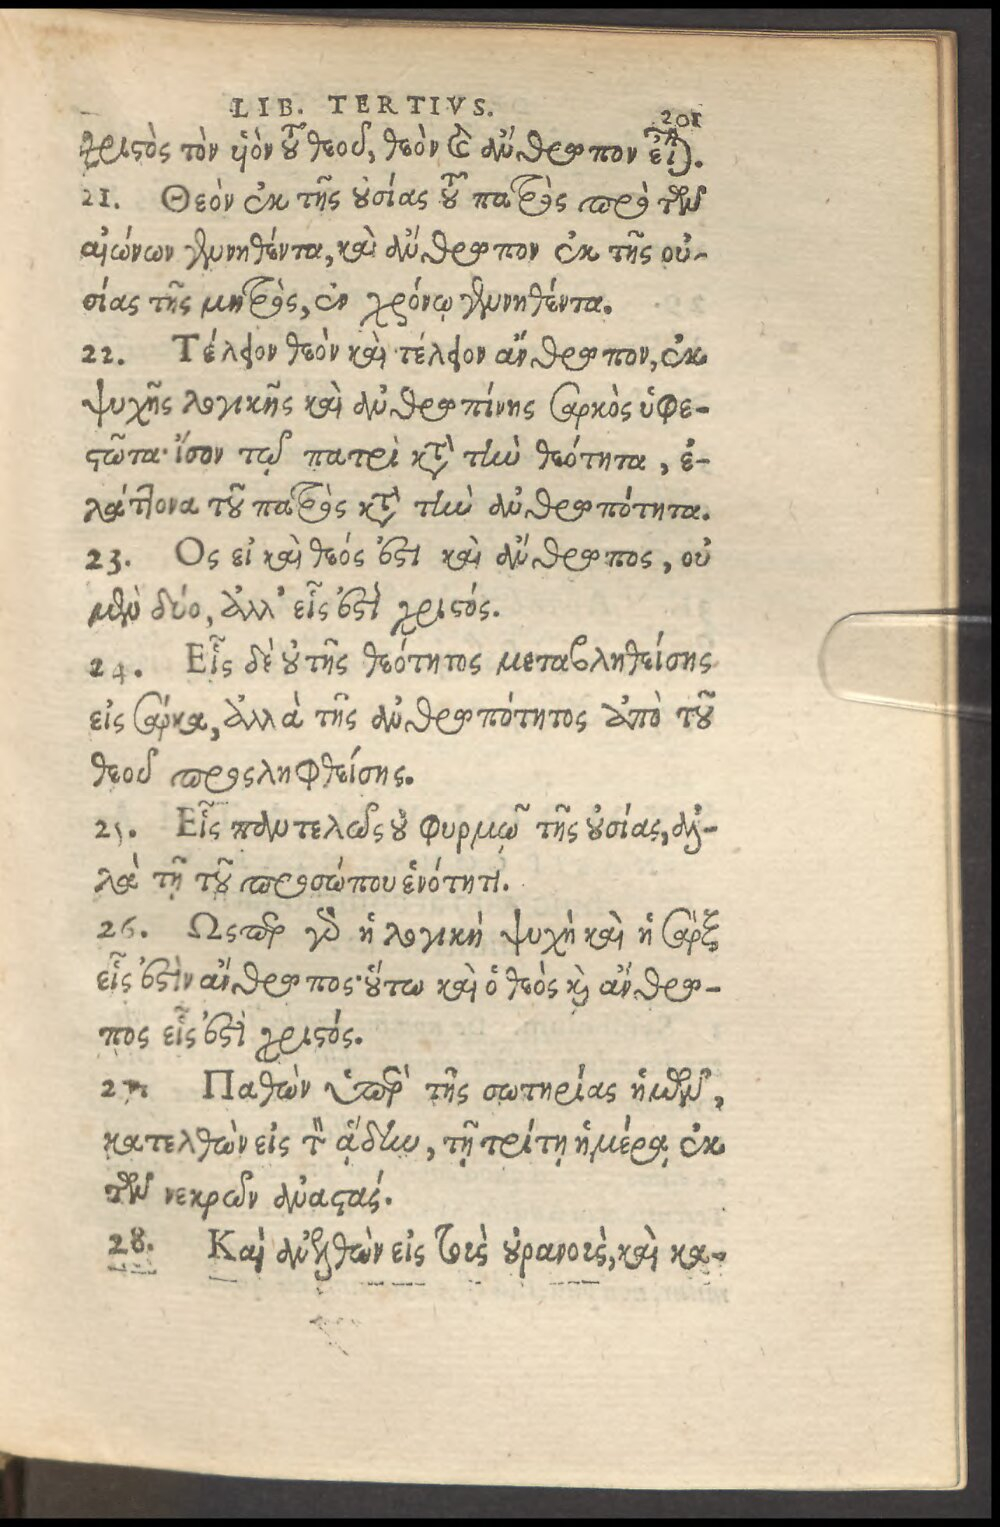 LIB. TERTIVS. 201
χριστὸς τὸν ὑιὸν τοῦ θεοῦ, θεὸν καὶ ἄνθρωπον εἶναι.
21. Θεὸν ἐκ τῆς οὐσίας τοῦ πατρὸς πρὸ τῶν
αἰώνων γεννηθέντα, καὶ ἄνθρωπον ἐκ τῆς οὐ-
σίας τῆς μητρὸς, ἐν χρόνῳ γεννηθέντα.
22. Τέλειον θεὸν καὶ τέλειον ἄνθρωπον, ἐκ
ψυχῆς λογικῆς καὶ ἀνθρωπίνης σαρκὸς ὑφε-
στῶτα· ἴσον τῷ πατρὶ κατὰ τὴν θεότητα, ἐ-
λάττονα τοῦ πατρὸς κατὰ τὴν ἀνθρωπότητα.
23. Ος εἰ καὶ θεός ἐστι καὶ ἄνθρωπος, οὐ
μὴν δύο, ἀλλ' εἷς ἐστὶ χριστός.
24. Εἷς δὲ οὐ τῆς θεότητος μεταβληθείσης
εἰς σάρκα, ἀλλὰ τῆς ἀνθρωπότητος ἀπὸ τοῦ
θεοῦ προςληφθείσης.
25. Εἷς παντελῶς οὐ φυρμῷ τῆς οὐσίας, ἀλ-
λὰ τῇ τοῦ προσώπου ἑνότητι.
26. Ωςπερ γὰρ ἡ λογικὴ ψυχὴ καὶ ἡ σάρξ
εἷς ἐστὶν ἄνθρωπος· οὕτω καὶ ὁ θεὸς καὶ ἄνθρω-
πος εἷς ἐστὶ χριστός.
27. Παθὼν ὑπὲρ τῆς σωτηρίας ἡμῶν,
κατελθὼν εἰς τὸν ᾅδην, τῇ τρίτῃ ἡμέρᾳ ἐκ
τῶν νεκρῶν ἀναστάς.
28. Καὶ ἀνελθὼν εἰς τοὺς οὐρανοὺς, καὶ κα-